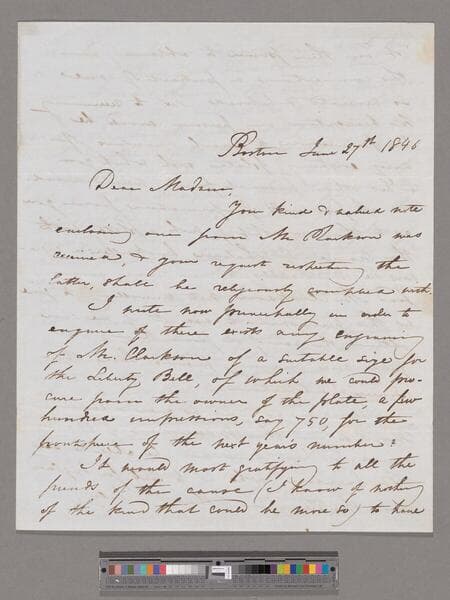 Boston June 27th 1846
Dear Madam,
Your kind & valued note
enclosing one from Mr Clarkson was
received & your request respecting the
latter, shall be religiously complied with.
I write now principally in order to
enquire if there exists any engraving
of Mr. Clarkson of a suitable size for
the Liberty Bell, of which we could pro-
cure from the owner of the plate, a few
hundred impressions, say 750, for the
frontispiece of the next years number?
It would most gratifying to all the
friends of the cause (I know of nothing
of the kind that could be more so) to have